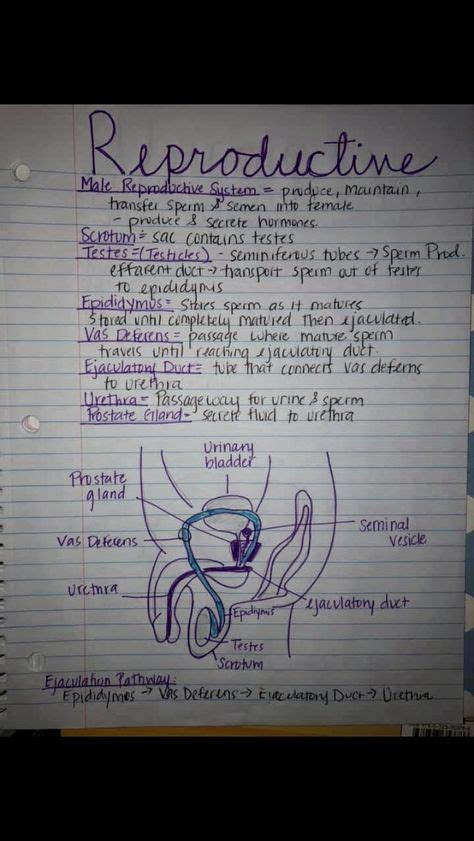 Reproductive
Male Reproductive System = produce, maintain,
transfer sperm & semen into female
- produce & secrete hormones.
Scrotum = sac contains testes
Testes = (Testicles) - seminiferous tubes → Sperm Prod.
efferent duct → transport sperm out of testes
to epididymis
Epididymus = Stores sperm as it matures
Stored until completely matured then ejaculated.
Vas Deferens = passage where mature sperm
travels until reaching ejaculatory duct.
Ejaculatory Duct = tube that connects vas deferns
to urethra
Urethra = Passageway for urine & sperm
Prostate Gland = secrete fluid to urethra
Urinary
bladder
Prostate
gland
Vas Deferens
Seminal
vesicle
Urethra
ejaculatory duct
Epidiymis
Testes
Scrotum
Ejaculation Pathway:
Epididymos → Vas Deferens → Ejaculatory Duct → Urethra